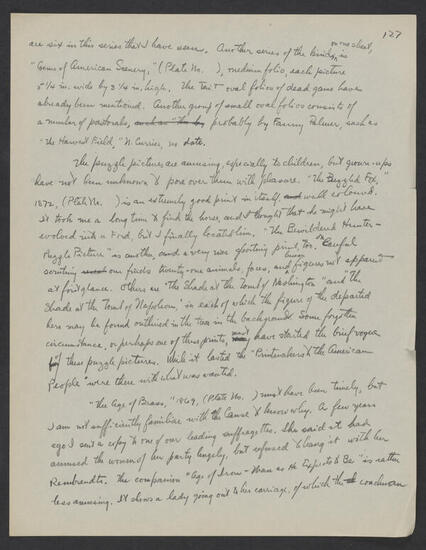 127
are six in this series that I have seen. Another series of the kind, on one sheet, is
"Gems of American Scenery," (Plate No. ), medium folio, each picture
5¼ in. wide by 3¼ in. high. The two oval folios of dead game have
already been mentioned. Another group of small oval folio consists of
a number of pastorals, such as "The by probably by Fanny Palmer, such as
"The Harvest Field," N. Currier, no date.
The puzzle pictures are amusing, especially to children, but grown-ups
have not been unknown to pore over them with pleasure. "The Puzzled Fox,"
1872, (Plate No. ) is an extremely good print in itself, and well colored.
It took me a long time to find the horse, and I thought that he might have
evolved into a Ford, but I finally located him. "The Bewildered Hunter-
Puzzle Picture" is another, and a very nice sporting print, too. Careful
scrutiny our finds twenty-one animals, faces, and figures not apparent
at first glance. Others are "The Shade at the Tomb of Washington" and "The
Shade at the Tomb of Napoleon," in each of which the figure of the departed
hero may be found outlined in the tree in the background. Some forgotten
circumstance, or perhaps one of these prints, must have started the brief vogue
of these puzzle pictures. While it lasted the "Printmakers to the American
People" were there with what was wanted.
"The Age of Brass," 1869, (Plate No. ) must have been timely, but
I am not sufficiently familiar with the Cause to know why. A few years
ago I sent a copy to one of our leading suffragettes. She said it had
amused the women of her party hugely, but refused to hang it with her
Rembrandts. The companion "Age of Iron - Man as He Expects to Be" is rather
less amusing. It shows a lady going out to her carriage, of which the coachman